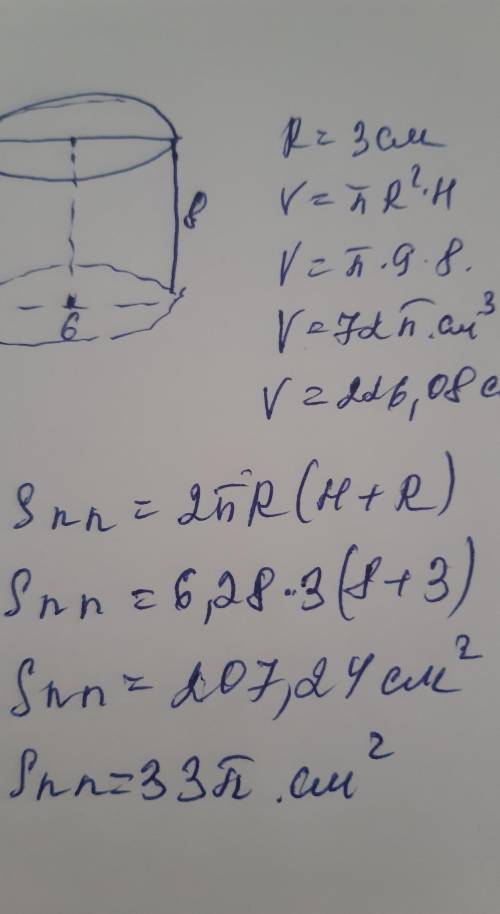 R = 3 см
V = πR²·H
8
V = π·9·8.
6
V = 72π.см³
V = 226,08 с
Sпп = 2πR(H+R)
Sпп = 6,28·3(8+3)
Sпп = 207,24 см²
Sпп = 33π.см²